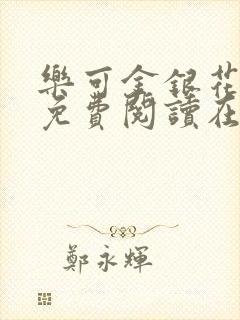 樂可金銀花
免費閱讀在
鄭永輝